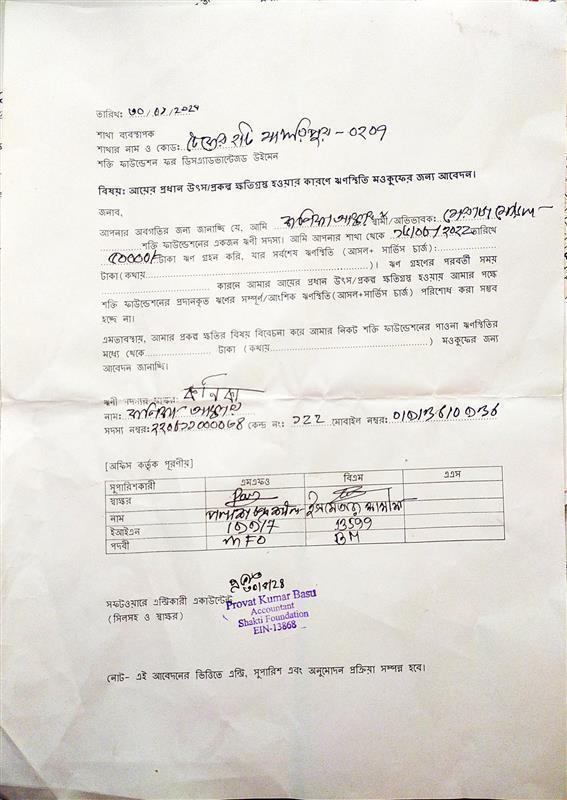 তারিখ: ৩০/০৯/২০২৪
শাখা ব্যবস্থাপক
শাখার নাম ও কোড: টেকেরহাট মাদারীপুর - ০২০৭
শক্তি ফাউন্ডেশন ফর ডিসএ্যাডভান্টেজড উইমেন
বিষয়: আয়ের প্রধান উৎস/প্রকল্প ক্ষতিগ্রস্ত হওয়ার কারণে ঋণস্থিতি মওকুফের জন্য আবেদন।
জনাব,
আপনার অবগতির জন্য জানাচ্ছি যে, আমি কনিকা আক্তার স্বামী/অভিভাবক:
শক্তি ফাউন্ডেশনের একজন ঋণী সদস্য। আমি আপনার শাখা থেকে ২৫/০৮/২০২২ তারিখে
৫০০০০/ টাকা ঋণ গ্রহন করি, যার সর্বশেষ ঋণস্থিতি (আসল+ সার্ভিস চার্জ):
টাকা(কথায়)। ঋণ গ্রহণের পরবর্তী সময়
কারনে আমার আয়ের প্রধান উৎস/প্রকল্প ক্ষতিগ্রস্ত হওয়ায় আমার পক্ষে
শক্তি ফাউন্ডেশনের প্রদানকৃত ঋণের সম্পূর্ণ/আংশিক ঋণস্থিতি(আসল+সার্ভিস চার্জ) পরিশোধ করা সম্ভব
হচ্ছে না।
এমতাবস্থায়, আমার প্রকল্প ক্ষতির বিষয় বিবেচনা করে আমার নিকট শক্তি ফাউন্ডেশনের পাওনা ঋণস্থিতির
মধ্যে থেকে টাকা (কথায়) মওকুফের জন্য
আবেদন জানাচ্ছি।
ঋণী সদস্যের স্বাক্ষর: কনিকা
নাম: কনিকা আক্তার
সদস্য নম্বর: ২২০৭২২০০০০৬৪ কেন্দ্র নং: ২২২ মোবাইল নম্বর:
[অফিস কর্তৃক পূরণীয়]
সুপারিশকারী এমএফও বিএম এএস
স্বাক্ষর
নাম
ইআইএন 13599
পদবী MFO BM
সফটওয়ারে এন্ট্রিকারী একাউন্টেন্ট
(সিলসহ ও স্বাক্ষর)
Provat Kumar Basu
Accountant
Shakti Foundation
EIN-13868
নোট- এই আবেদনের ভিত্তিতে এন্ট্রি, সুপারিশ এবং অনুমোদন প্রক্রিয়া সম্পন্ন হবে।